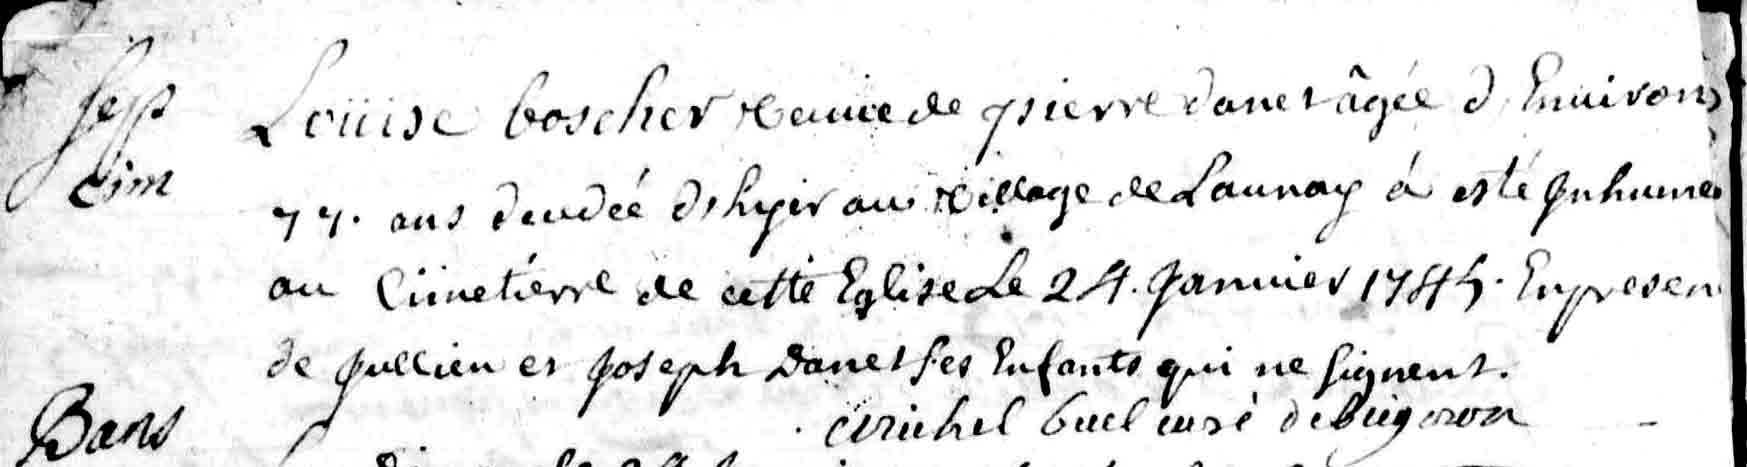 Sep
Cim
Loüise boscher veuve de pierre danet âgée d'Environ
77. ans decedée d'hyer au village de Launay á esté Inhumée
au Cimetierre de cette Eglise Le 24. Janvier 1745. En presen
de Jullien et Joseph Danet Ses Enfants qui ne Signent.
Michel curé
Bans